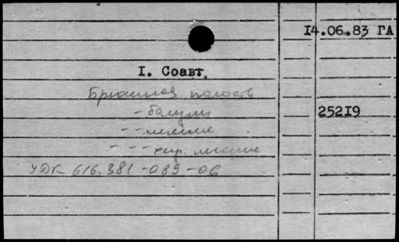 14.06.83 ГА
I. Соавт.
Брюшная полость
25219
- - лечение
- - - хир. лечение
УДК 616.381-089-06